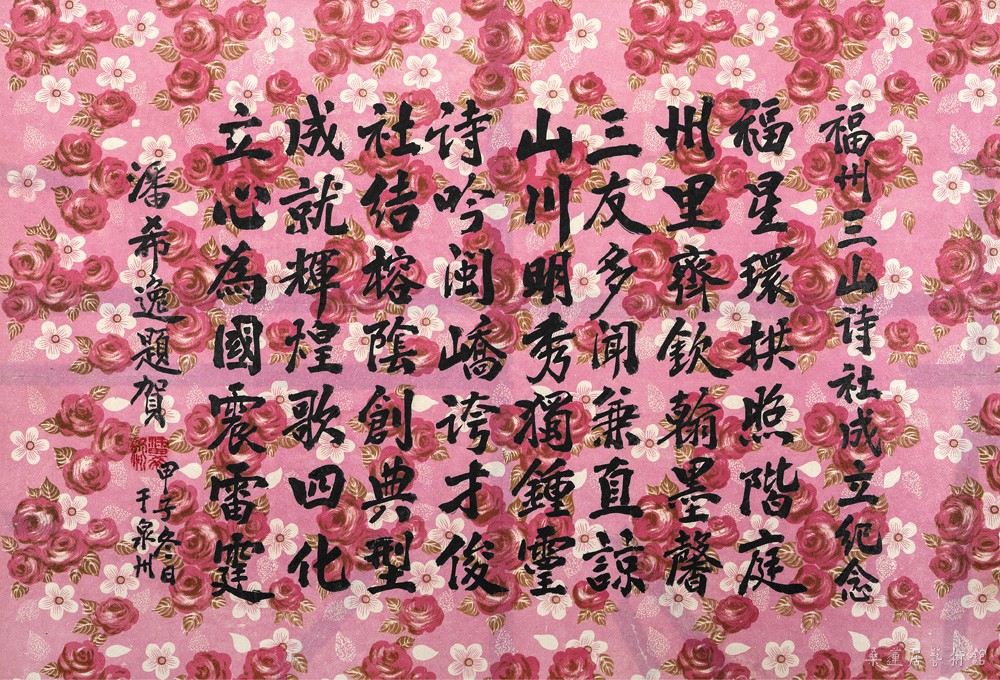 福州三山诗社成立纪念
福星環拱照階庭
州里齊欽翰墨馨
三友多闻兼直諒
山川明秀獨鍾靈
诗吟闽嶠誇才俊
社结榕蔭創典型
成就輝煌歌四化
立心為國震雷霆
潘希逸題賀
甲子冬日
于泉州
桑蓮居藝術館